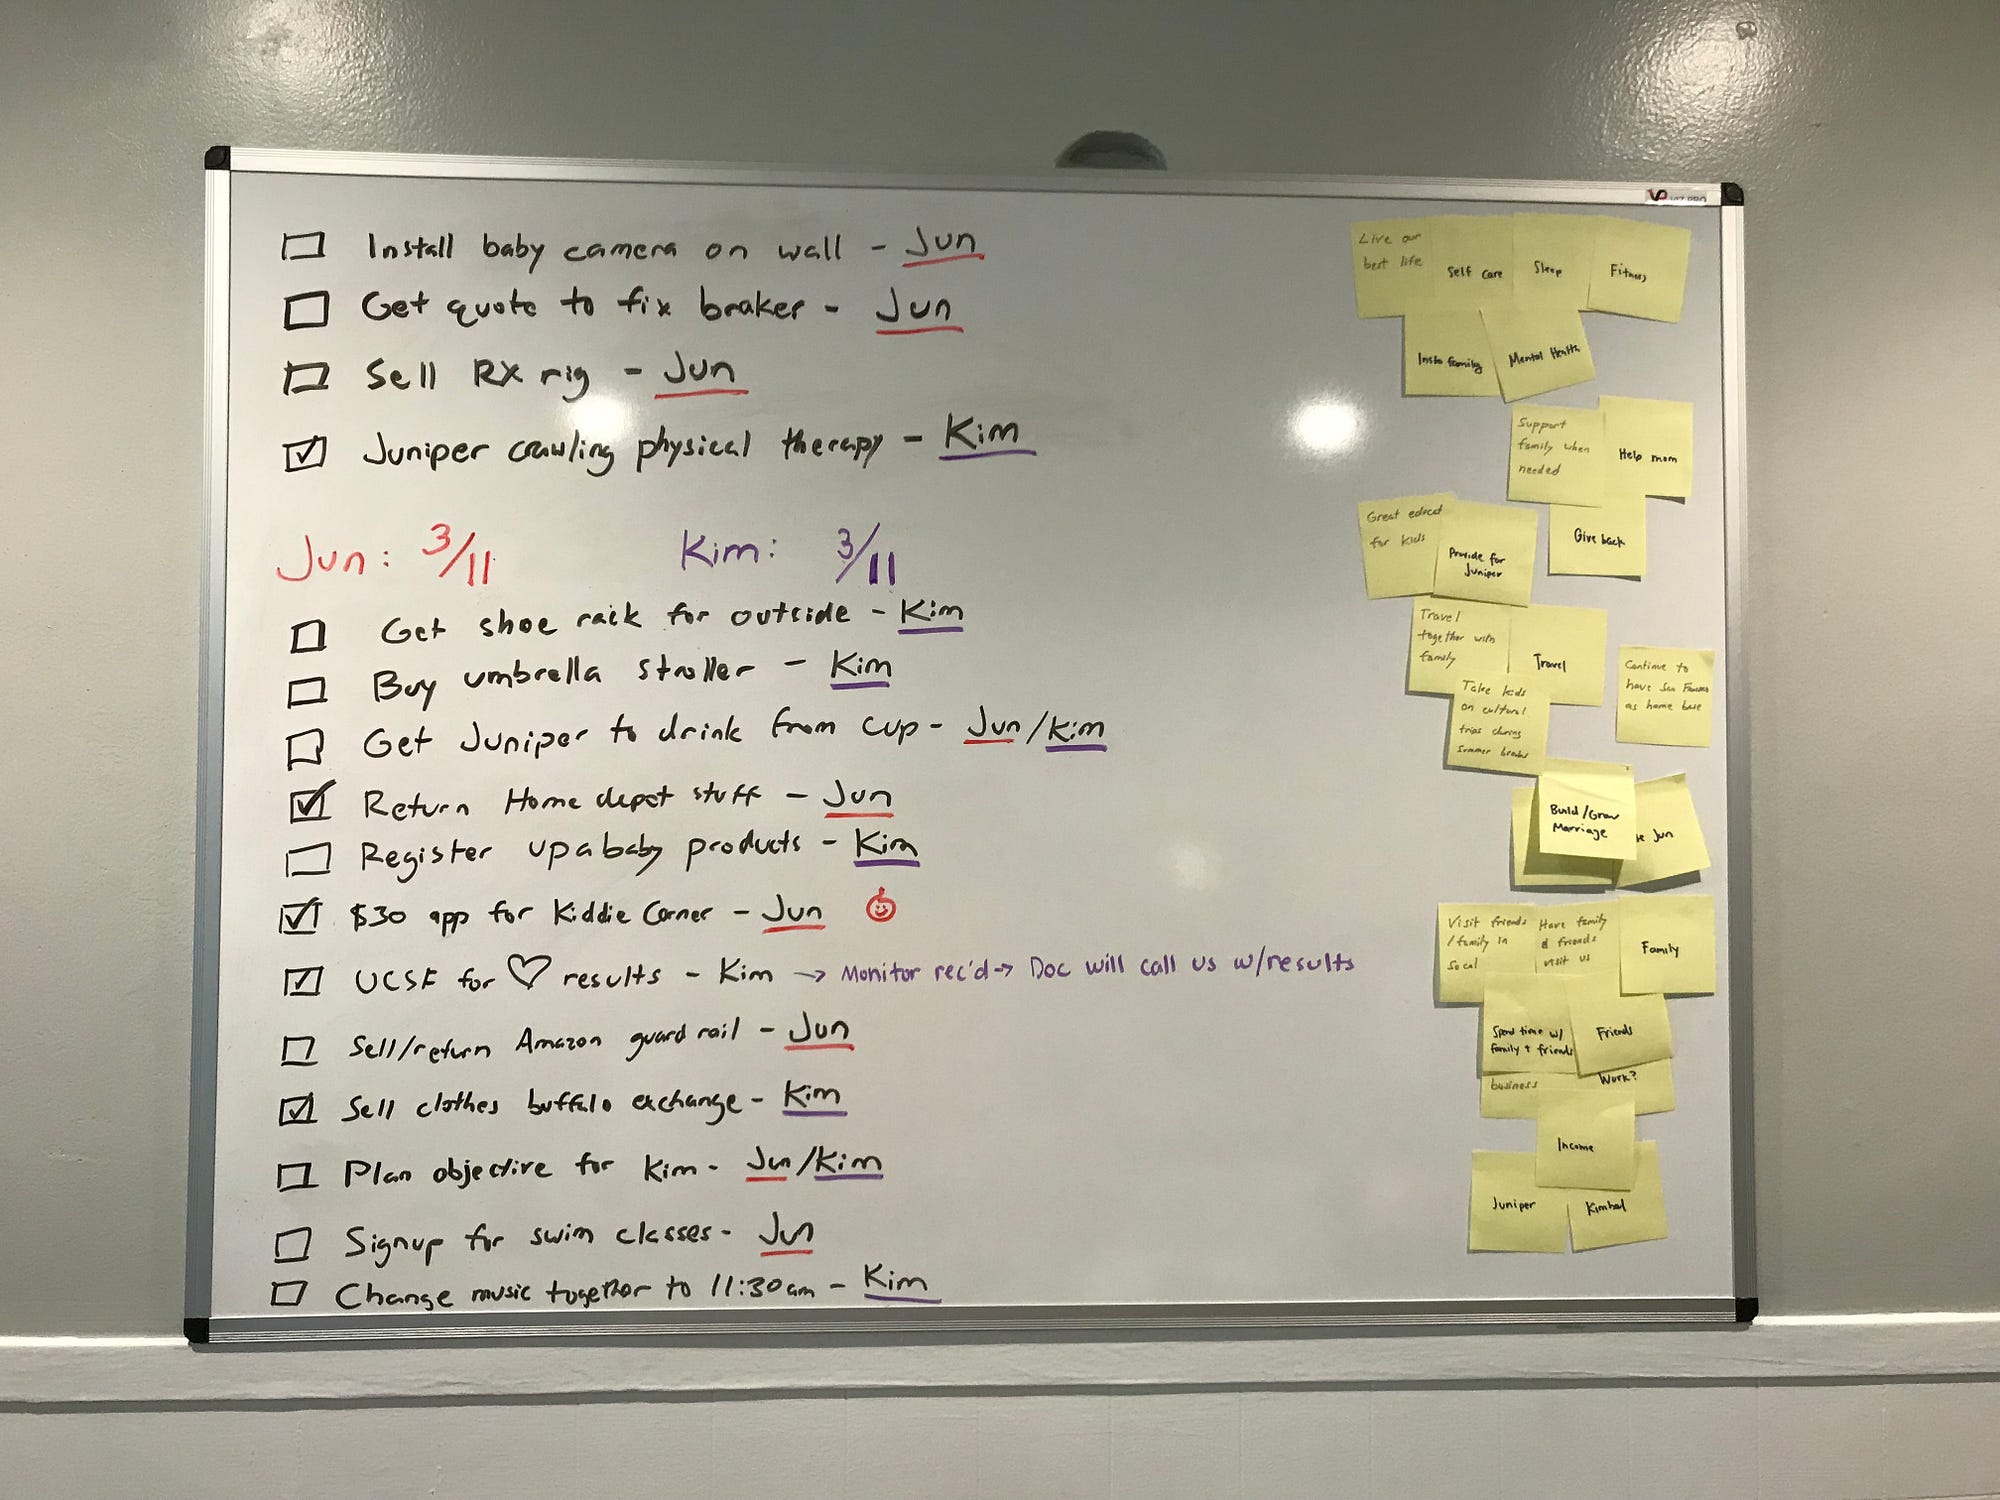 Install baby camera on wall - Jun
Get quote to fix braker - Jun
Sell RX rig - Jun
Juniper crawling physical therapy - Kim
Jun: 3/11 Kim: 3/11
Get shoe rack for outside - Kim
Buy umbrella stroller - Kim
Get Juniper to drink from cup - Jun/Kim
Return Home depot stuff - Jun
Register upababy products - Kim
$30 app for Kiddie Corner - Jun
UCSF for ♡ results - Kim → Monitor rec'd → Doc will call us w/results
Sell/return Amazon guard rail - Jun
Sell clothes buffalo exchange - Kim
Plan objective for Kim - Jun/Kim
Signup for swim classes - Jun
Change music together to 11:30am - Kim
VIZ PRO
Live our
best life
Self care
Sleep
Fitness
Insta family
Mental Health
Support
family when
needed
Help mom
Give back
Great educat
for kids
Provide for
Juniper
Travel
together with
family
Travel
Take kids
on cultural
trips during
summer breaks
Continue to
have San
as home base
Build/Grow
Marriage
Jun
Visit friends
/family in
Socal
Have family
& friends
visit us
Family
Spend time w/
family + friends
Friends
business
Work?
Income
Juniper